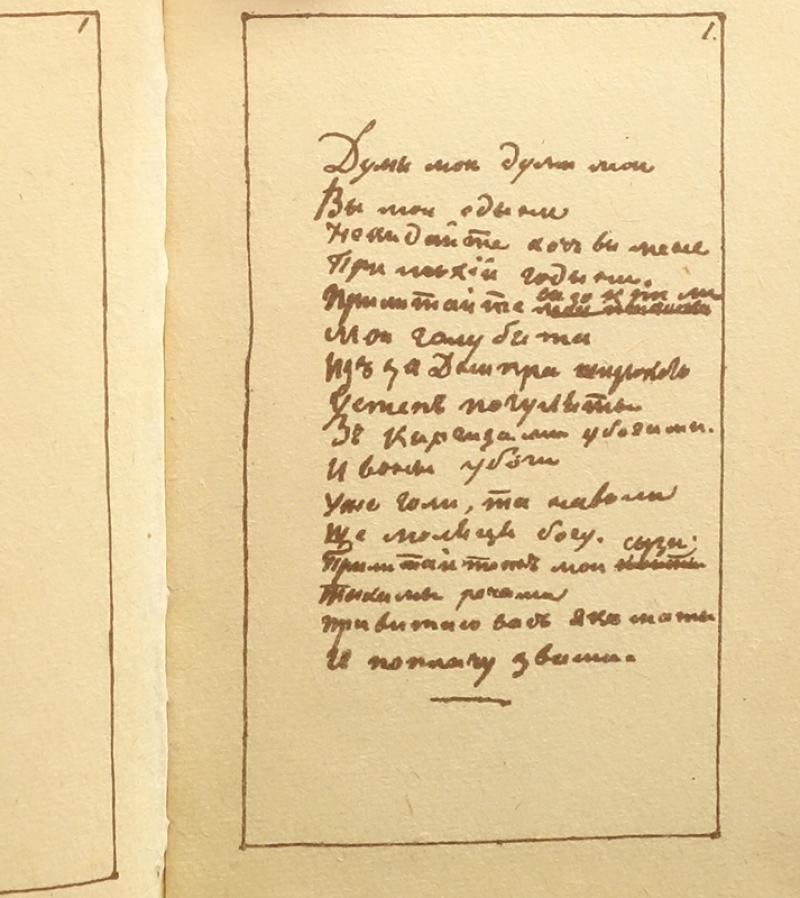 1
1.
Думы мои думи мои
Вы мои едыни
Некидайте хочь ви мене
При лыхій годыни.
Прилитайте
Мои голубята
Изъ за Днипра широкого
Устепъ погуляты
Зъ Киргизами убогими.
И вони убоги
Уже голи, та наволи
Ще моляця богу.
сызи
Прилитайтежъ мои
Тыхими речами
Привитаю васъ якъ
И поплачу звами.